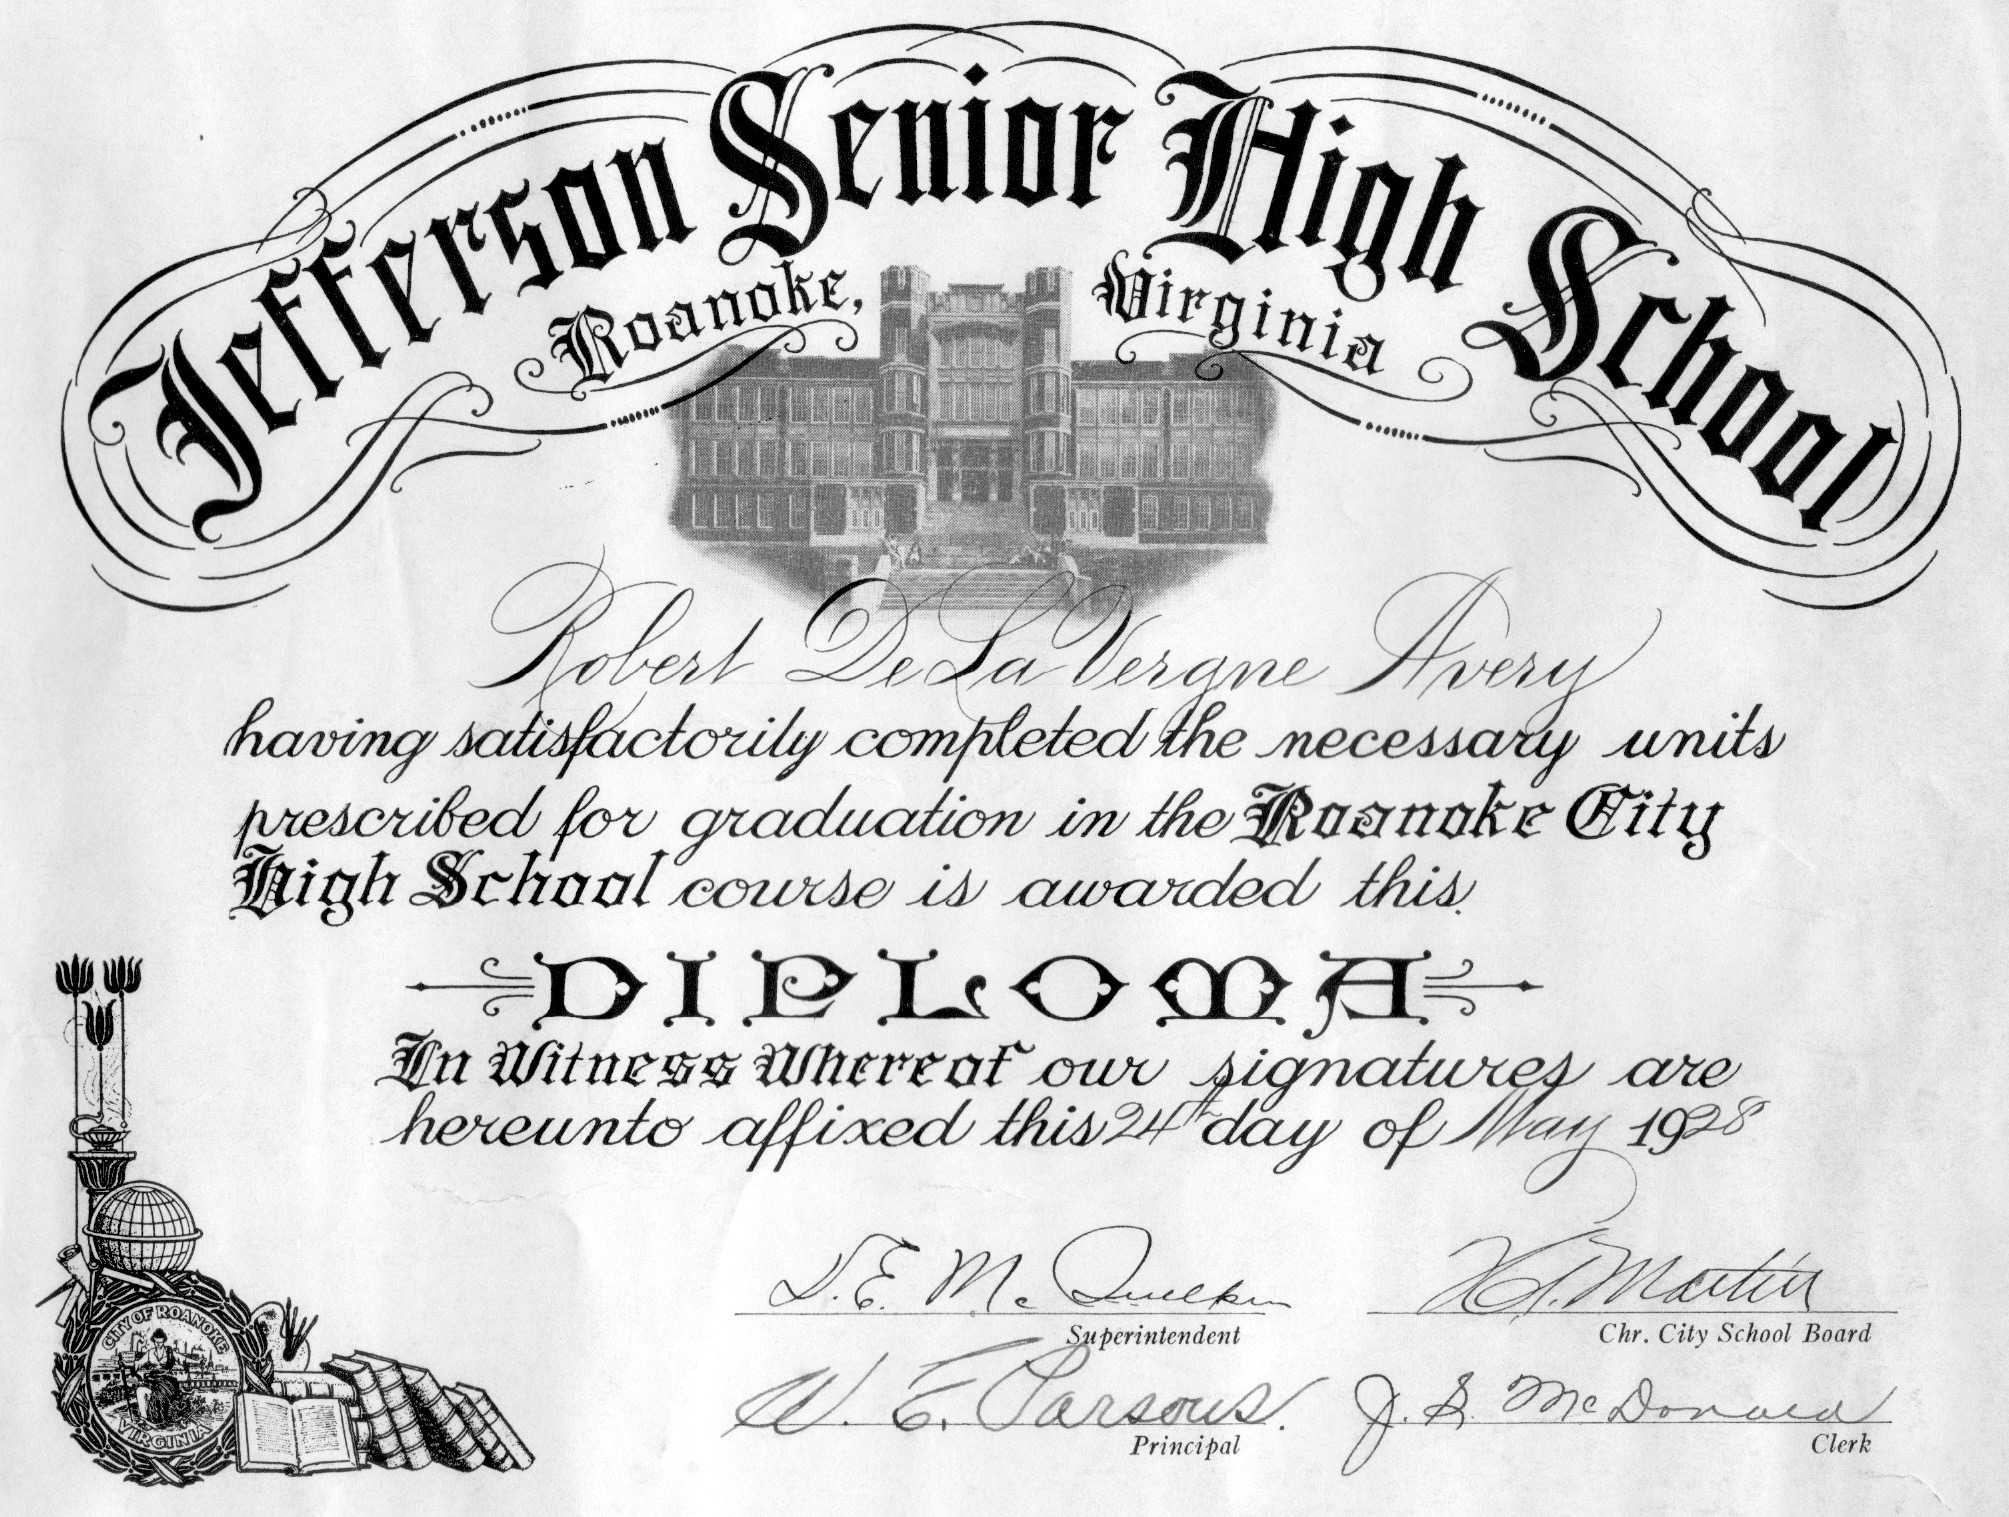 Jefferson Senior High School
Roanoke, Virginia
Robert De La Vergne Avery
having satisfactorily completed the necessary units
prescribed for graduation in the Roanoke City
High School course is awarded this
DIPLOMA
In Witness Whereof our signatures are
hereunto affixed this 24th day of May 1928
D. E. McQuilkin
Superintendent
Martin
Chr. City School Board
W. E. Parsons.
Principal
J. S. McDonald
Clerk
CITY OF ROANOKE
VIRGINIA